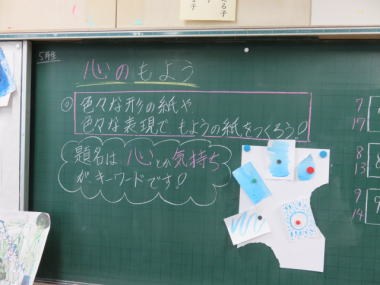 5年生
心のもよう
色々な形の紙や
色々な表現でもようの紙をつくろう!
題名は心とか気持ち
がキーワードです!
7
17
8
13
9
14